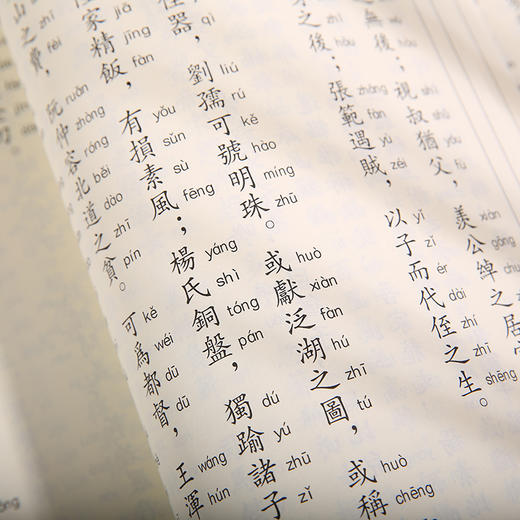 無後；視叔猶父，羨公綽之居
hòu shì shū yóu fù xiàn gōng
之後；張範遇賊，以子而代侄之生。
zhī hòu zhāng fàn yù zéi yǐ zǐ ér dài zhí zhī shēng
器，劉孺可號明珠。或獻泛湖之圖，或稱
qì liú rú kě hào míng zhū huò xiàn fàn hú zhī tú huò chēng
家精飯，有損素風；楊氏銅盤，獨踰諸子
jiā jīng fàn yǒu sǔn sù fēng yáng shì tóng pán dú yú zhū zǐ
山之費，阮仲容北道之貧。可爲都督，王渾
fèi ruǎn zhòng róng běi dào zhī pín kě wéi dū dū wáng hún